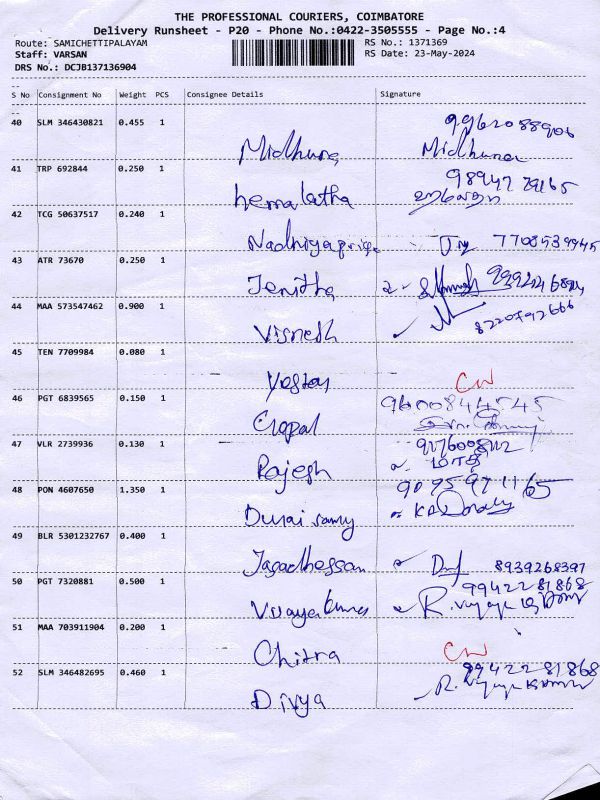 THE PROFESSIONAL COURIERS, COIMBATORE
Delivery Runsheet - P20 - Phone No.:0422-3505555 - Page No.:4
Route: SAMICHETTIPALAYAM
RS No.: 1371369
Staff: VARSAN
RS Date: 23-May-2024
DRS No.: DCJB137136904
S No Consignment No Weight PCS Consignee Details Signature
40 SLM 346430821 0.455 1
Midhuna Midhuna
41 TRP 692844 0.250 1
hemalatha
42 TCG 50637517 0.240 1
Nadhiyapriya 7708539945
43 ATR 73670 0.250 1
Jenitha
44 MAA 573547462 0.900 1
Visnesh 8220792666
45 TEN 7709984 0.080 1
CW
46 PGT 6839565 0.150 1
9600844545
Gopal
47 VLR 2739936 0.130 1
Rajesh மாதி
48 PON 4607650 1.350 1
9095971165
Durai samy
49 BLR 5301232767 0.400 1
Jagadhessan 8939268397
50 PGT 7320881 0.500 1
9942281868
Vijayakumar R. Vijayakumar
51 MAA 703911904 0.200 1
Chitra CW
52 SLM 346482695 0.460 1
9942281868
Divya R. Vijayakumar